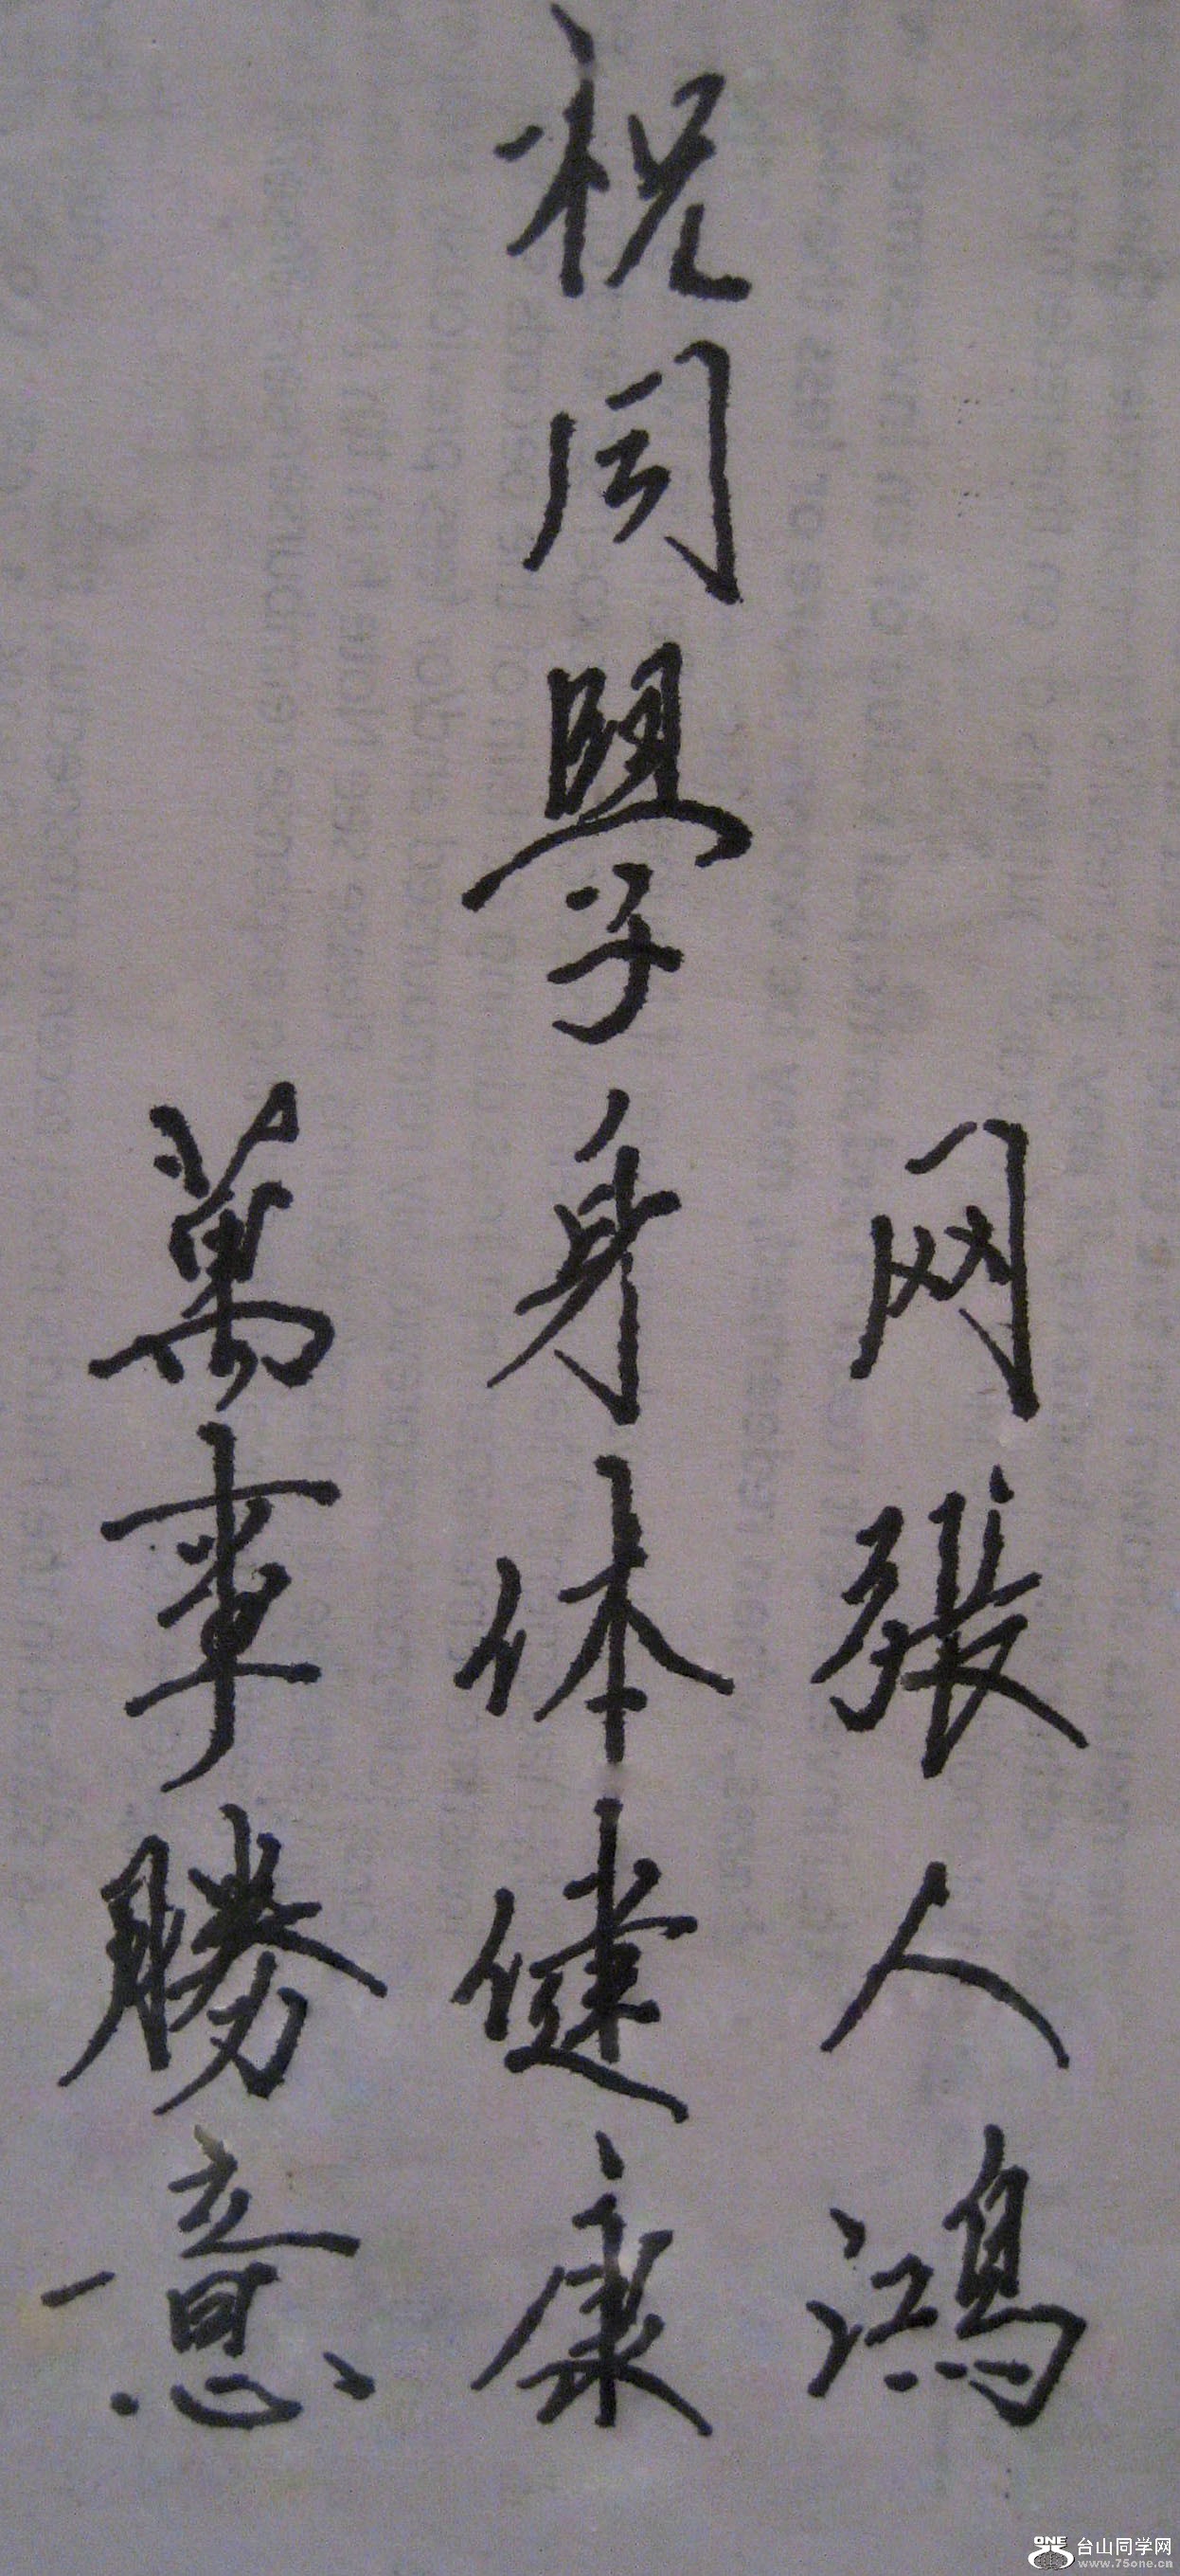 网張人鴻
祝同學身体健康
萬事勝意
ONE
台山同学网
www.75one.cn